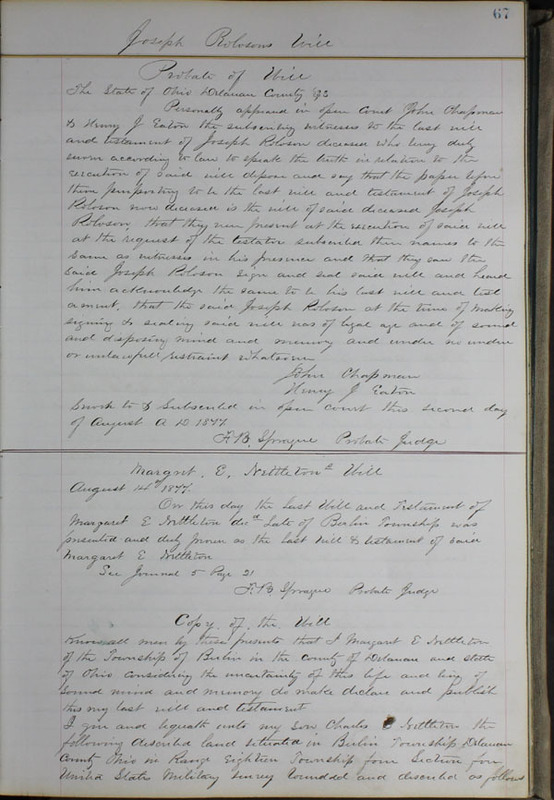 67
Joseph Robosons Will
Probate of Will
The State of Ohio Delaware County SS
Personally appeared in open Court John Chapman
& Henry J Eaton the subscribing witnesses to the last will
and testament of Joseph Roloson deceased who being duly
sworn according to law to speak the truth in relation to the
execution of said will depose and say that the paper before
them purporting to be the last will and testament of Joseph
Roloson now deceased is the will of said deceased Joseph
Roloson, that they were present at the execution of said will
at the request of the testator subscribed their names to the
same as witnesses in his presence and that they saw the
said Joseph Roloson sign and seal said will and heard
him acknowledge the same to be his last will and test
ament, that the said Joseph Roloson at the time of making
signing & sealing said will was of legal age and of sound
and disposing mind and memory and under no undue
or unlawfull restraint whatsoever
John Chapman
Henry J Eaton
Sworn to & Subscribed in open court this second day
of August A D 1877
F. B. Sprague Probate Judge
Margret. E. Nettleton Will
August 14th 1877.
On this day the Last Will and Testament of
Margaret E Nettleton decd Late of Berlin Township was
presented and duly proven as the last will & testament of said
Margaret E Nettleton
See Journal 5 Page 21
F. B Sprague Probate Judge
Copy of the Will
Know all men by these presents that I Margaret E Nettleton
of the Township of Berlin in the County of Delaware and state
of Ohio considering the uncertainty of this life and being of
sound mind and memory do make declare and publish
this my last will and testament
I give and bequeath unto my son Charles Nettleton the
following described land situated in Berlin Township, Delaware
County Ohio in Range Eighteen Township four Section four
United States Military Survey bounded and described as follows